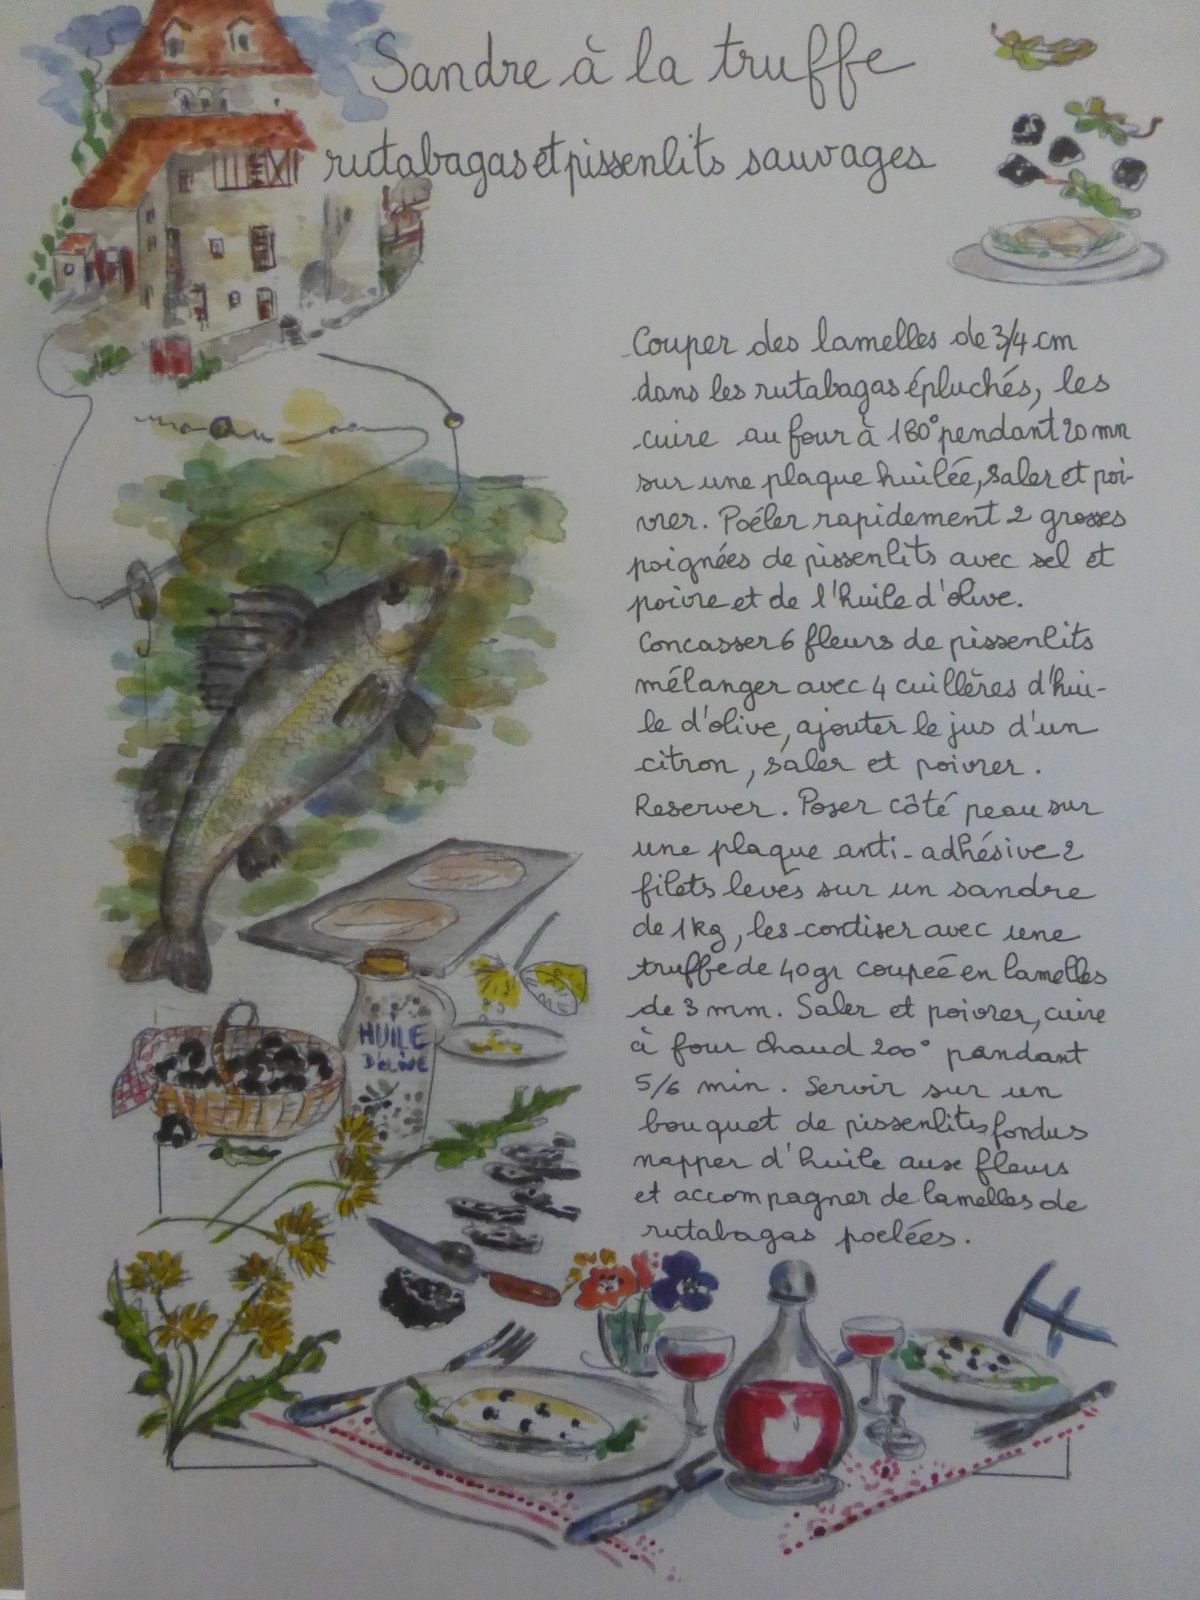 Sandre à la truffe
rutabagas et pissenlits sauvages
Couper des lamelles de 3/4 cm
dans les rutabagas épluchés, les
cuire au four à 180° pendant 20 mn
sur une plaque huilée, saler et poi-
vrer. Poéler rapidement 2 grosses
poignées de pissenlits avec sel et
poivre et de l'huile d'olive.
Concasser 6 fleurs de pissenlits
mélanger avec 4 cuillères d'hui-
le d'olive, ajouter le jus d'un
citron, saler et poivrer.
Reserver. Poser côté peau sur
une plaque anti-adhésive 2
filets levés sur un sandre
de 1kg, les contiser avec une
truffe de 40gr coupeé en lamelles
de 3 mm. Saler et poivrer, cuire
à four chaud 200° pendant
5/6 min. Servir sur un
bouquet de pissenlits fondus
napper d'huile aux fleurs
et accompagner de lamelles de
rutabagas poelées.
HUILE
D'OLIVE